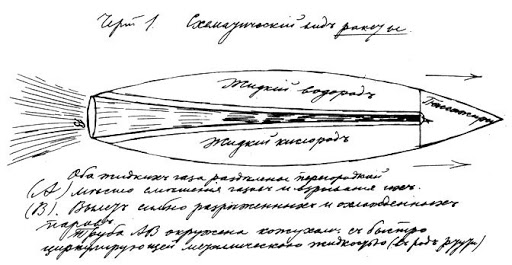 Черт 1. Схематическій видъ ракеты.
Жидкій водородъ
Пассажиры
В
Жидкій кислородъ
Оба жидкихъ газа раздѣлены перегородкой
(А) мѣсто смѣшенія газовъ и взрыванія ихъ.
(В). Вылетъ сильно разрѣженныхъ и охлажденныхъ
паровъ
Труба АВ окружена кожухомъ съ быстро
циркулирующей металлической жидкостью (въ родѣ ртути)